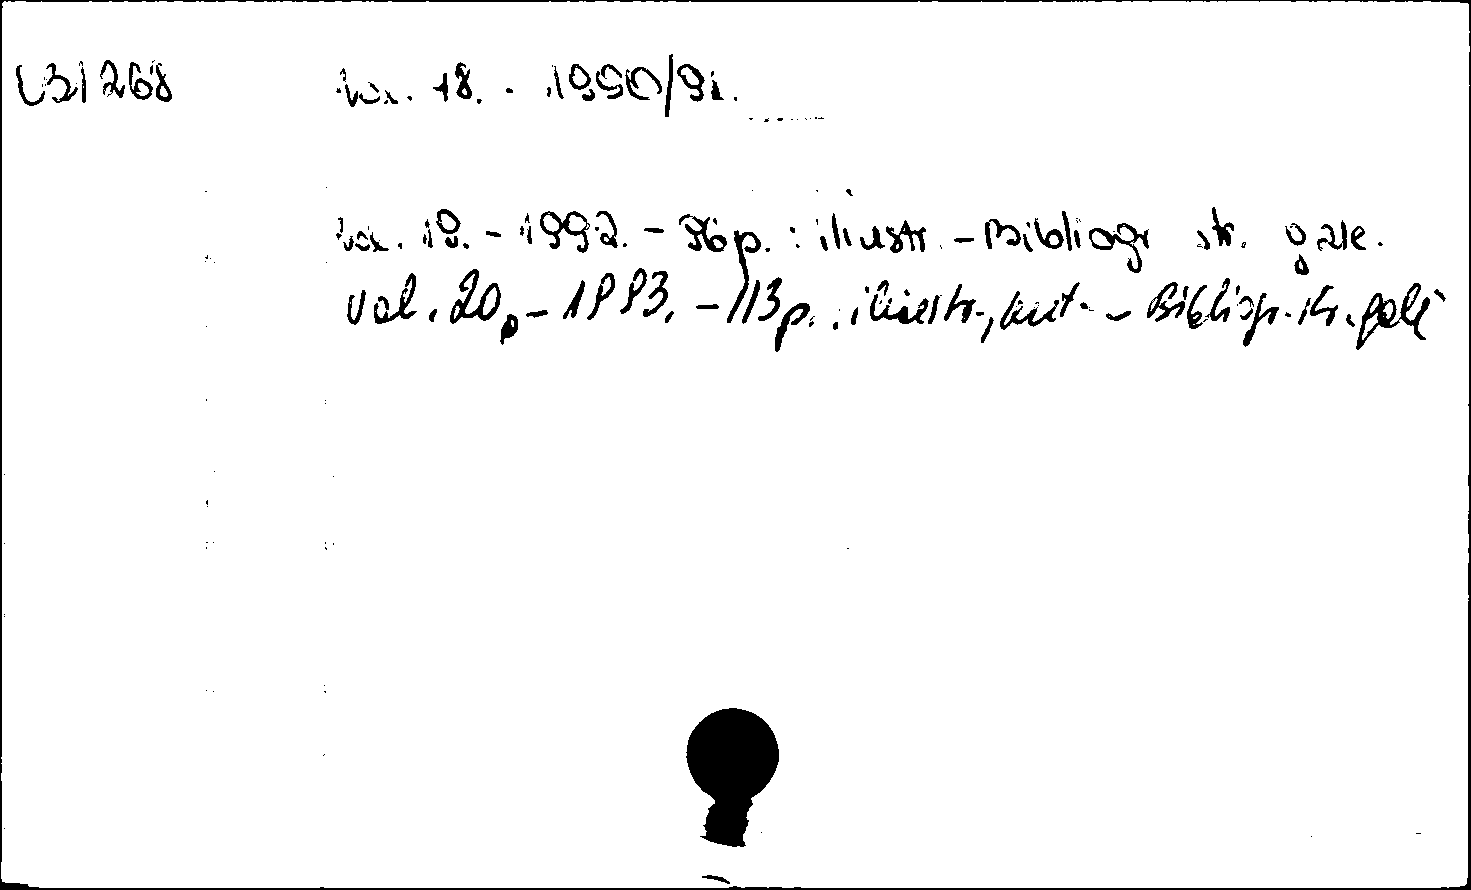 UB1268 Vol. 18. - 1990/91.
Vol. 19. - 1992. - 96 p. : iliustr. - Bibliogr str. gale.
Vol. 20. - 1993. - 113 p. : iliustr., - Bibliogr. str. gale